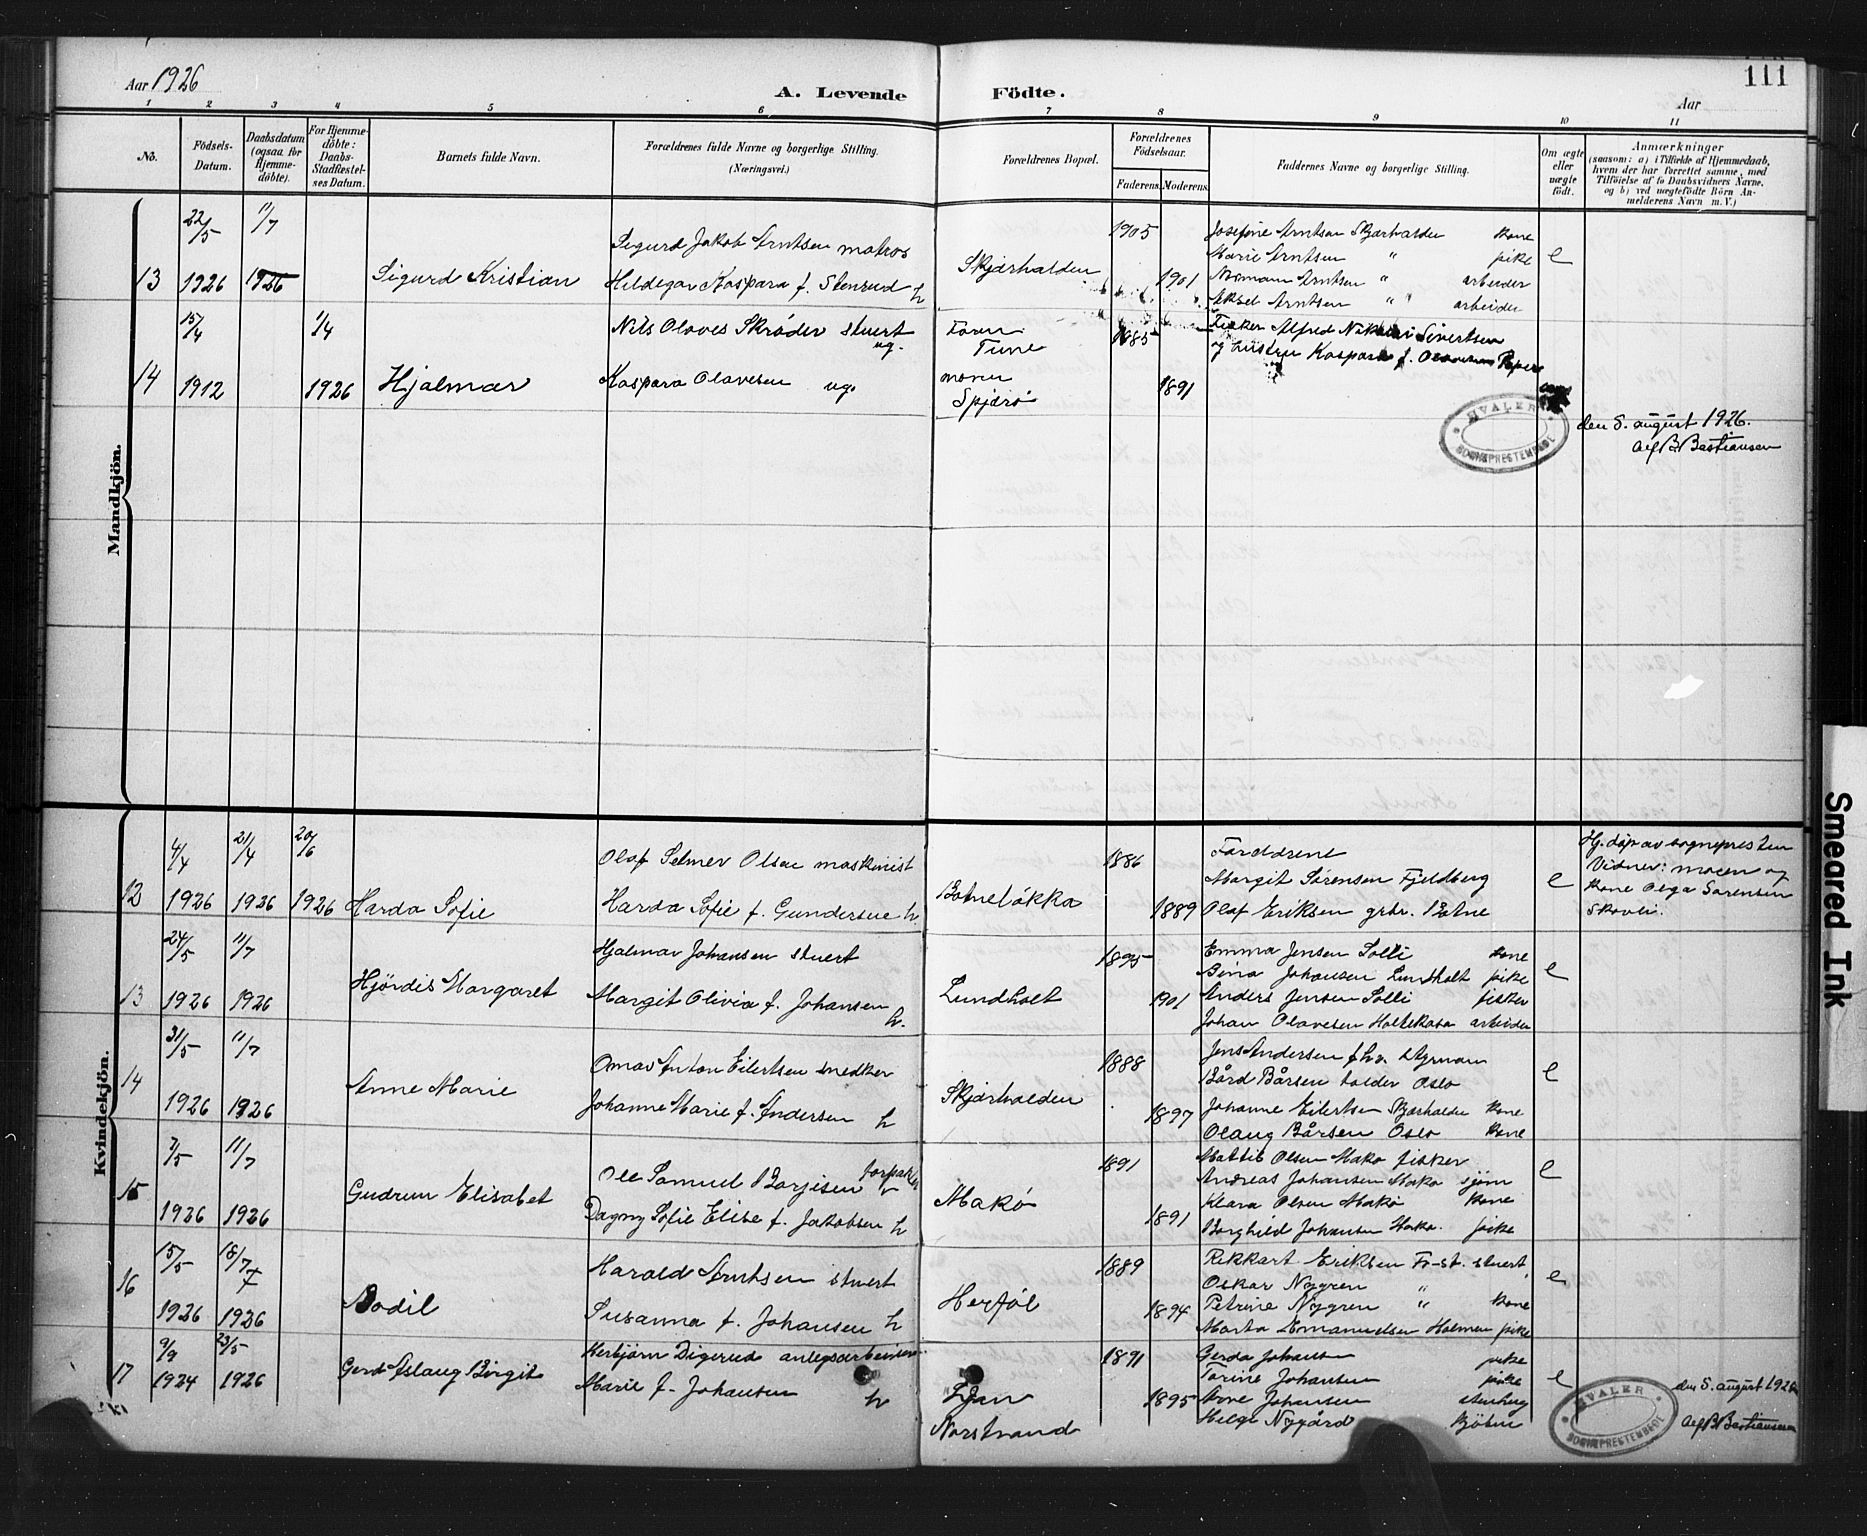 Aar 1926
A. Levende Födte.
111
Aar
1 2 3 4 5 6 7 8 9 10 11
No.
Födsels-Datum.
Daabsdatum (ogsaa for Hjemme-döbte).
For Hjemme-döbte: Daabs-Stadfestel-ses Datum.
Barnets fulde Navn.
Forældrenes fulde Navne og borgerlige Stilling.
(Næringsvei.)
Forældrenes Bopæl.
Forældrenes Födselsaar.
Faderens. Moderens.
Faddernes Navne og borgerlige Stilling.
Om ægte eller uægte födt.
Anmærkninger
(saasom: a) i Tilfælde af Hjemmedaab, hvem der har forrettet samme, med Tilföielse af to Daabsvidners Navne, og b) ved uægtefödte Börn An-melderens Navn m. V.)
Mandkjön.
13
22/5 1926
11/7 1926
Sigurd Kristian
Sigurd Jakob Arntsen matros
Hildegar Kaspara f. Stenrud h
Skjærhalden
1905
1901
Josefine Arntsen Skjærhalden kone
Marie Arntsen " pike
Norman Arntsen " arbeider
Aksel Arntsen " arbeider
e
14
15/4 1912
1/4 1926
Hjalmar
Nils Olaves Skrøder stuert ug.
Kaspara Olavesen ug.
Faren Tune
moren Spjærø
1885
1891
Fisker Alfred Sivertsen
og hustru Kaspara f.
HVALER SOGNEPRESTEMBEDE
den 5. august 1926.
Alf B. Bastiansen
Kvindekjön.
12
4/4 1926
21/4 1926
20/6 1926
Harda Sofie
Olaf Selmer Olsen maskinist
Harda Sofie f. Gundersen h
Botneløkka
1886
1889
Forældrene
Margit Sørensen Fjeldberg
Olaf Eriksen grbr. Botne
e
Hj.døp av sognepresten
Vidner: moren og
kone Olga Sørensen
Skovli.
13
24/5 1926
11/7 1926
Hjördis Margaret
Hjalmar Johansen stuert
Margit Olivia f. Johansen h.
Lundholt
1895
1901
Emma Jensen Solli kone
Bina Johansen Lundholt pike
Anders Jensen Solli fisker
Johan Olavesen Holtekasa arbeider
e
14
31/5 1926
11/7 1926
Anne Marie
Omar Anton Eilertsen snedker
Johanne Marie f. Andersen h
Skjærhalden
1888
1897
Jens Andersen fhv. styrman
Bård Bårsen Oslo
Johanne Eilertsen Skjærhalden kone
Olaug Bårsen Oslo kone
e
15
7/5 1926
11/7 1926
Gudrun Elisabet
Ole Samuel Borjesen
Dagny Sofie Elise f. Jakobsen h
Makø
1891
1891
Mattis Olsen Makø fisker
Andreas Johansen Makø sjøm
Klara Olsen Makø kone
Borghild Johansen Makø. pike
e
16
15/5 1926
18/7 1926
Bodil
Harald Arntsen stuert
Susanna f. Johansen h
Herføl
1889
1894
Rikkart Eriksen Fr-st. stuert,
Oskar Nygren "
Petrine Nygren " kone
Marta Emanuelsen Holmen pike
e
17
9/9 1924
23/5 1926
Gerd Aslaug Birgit
Herbjørn Digerud anlegsarbeider
Marie f. Johansen h
Ljan
Norstrand
1891
1895
Gerda Johansen pike
Torine Johansen pike
Arne Johansen
Helge Nygård
e
HVALER SOGNEPRESTEMBEDE
den 5. august 1926
Alf B. Bastiansen
Smeared Ink